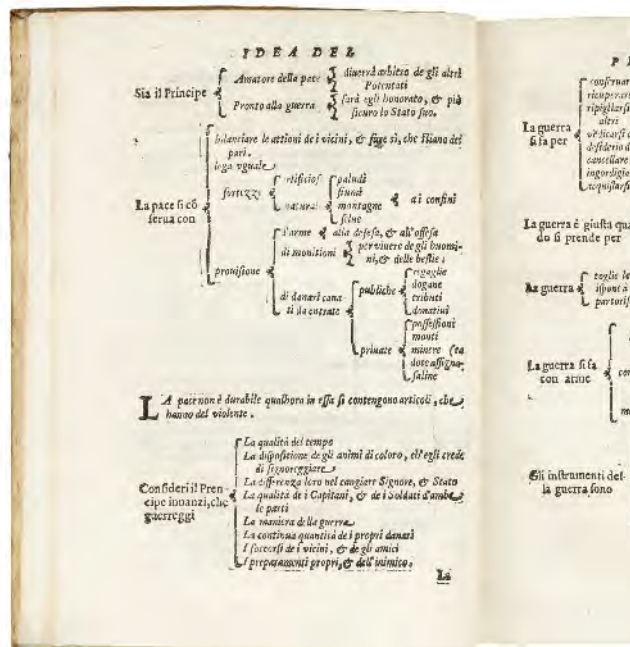 IDEA DEL
Sia il Principe
Amatore della pace
diuerrà arbitro de gli altri
Potentati
Pronto alla guerra
sarà egli honorato, & più
sicuro lo Stato suo.
La pace si cõ
serua con
bilanciare le attioni de i vicini, & fare sì, che stiano del
pari.
lega vguale
fortezze
artificiose
naturali
paludi
fiumi
montagne
selue
ai confini
prouisione
d'arme
alla difesa, & all'offesa
di monitioni
per viuere de gli huomi-
ni, & delle bestie.
di danari caua
ti da entrate
publiche
regaglie
dogane
tributi
donatiui
priuate
possessioni
monti
minere
dote assigna-
saline
LA pace non è durabile qualhora in essa si contengono articoli, che
hanno del violente.
Consideri il Pren-
cipe innanzi, che
guerreggi
La qualità del tempo
La dispositione de gli animi di coloro, ch'egli crede
di signoreggiare
La differenza loro nel cangiare Signore, & Stato
La qualità de i Capitani, & de i Soldati d'ambe
le parti
La maniera della guerra
La continua quantità de i propri danari
I soccorsi de i vicini, & de gli amici
I preparamenti propri, & dell'inimico.
La
P
La guerra
si fa per
conseruar
ricuperar
ripigliarsi
altri
vēdicarsi d
desiderio d
cancellare
ingordigia
acquistarsi
La guerra è giusta qua
do si prende per
La guerra
toglie le
partoris
La guerra si fa
con arme
con
Gli instrumenti del-
la guerra sono